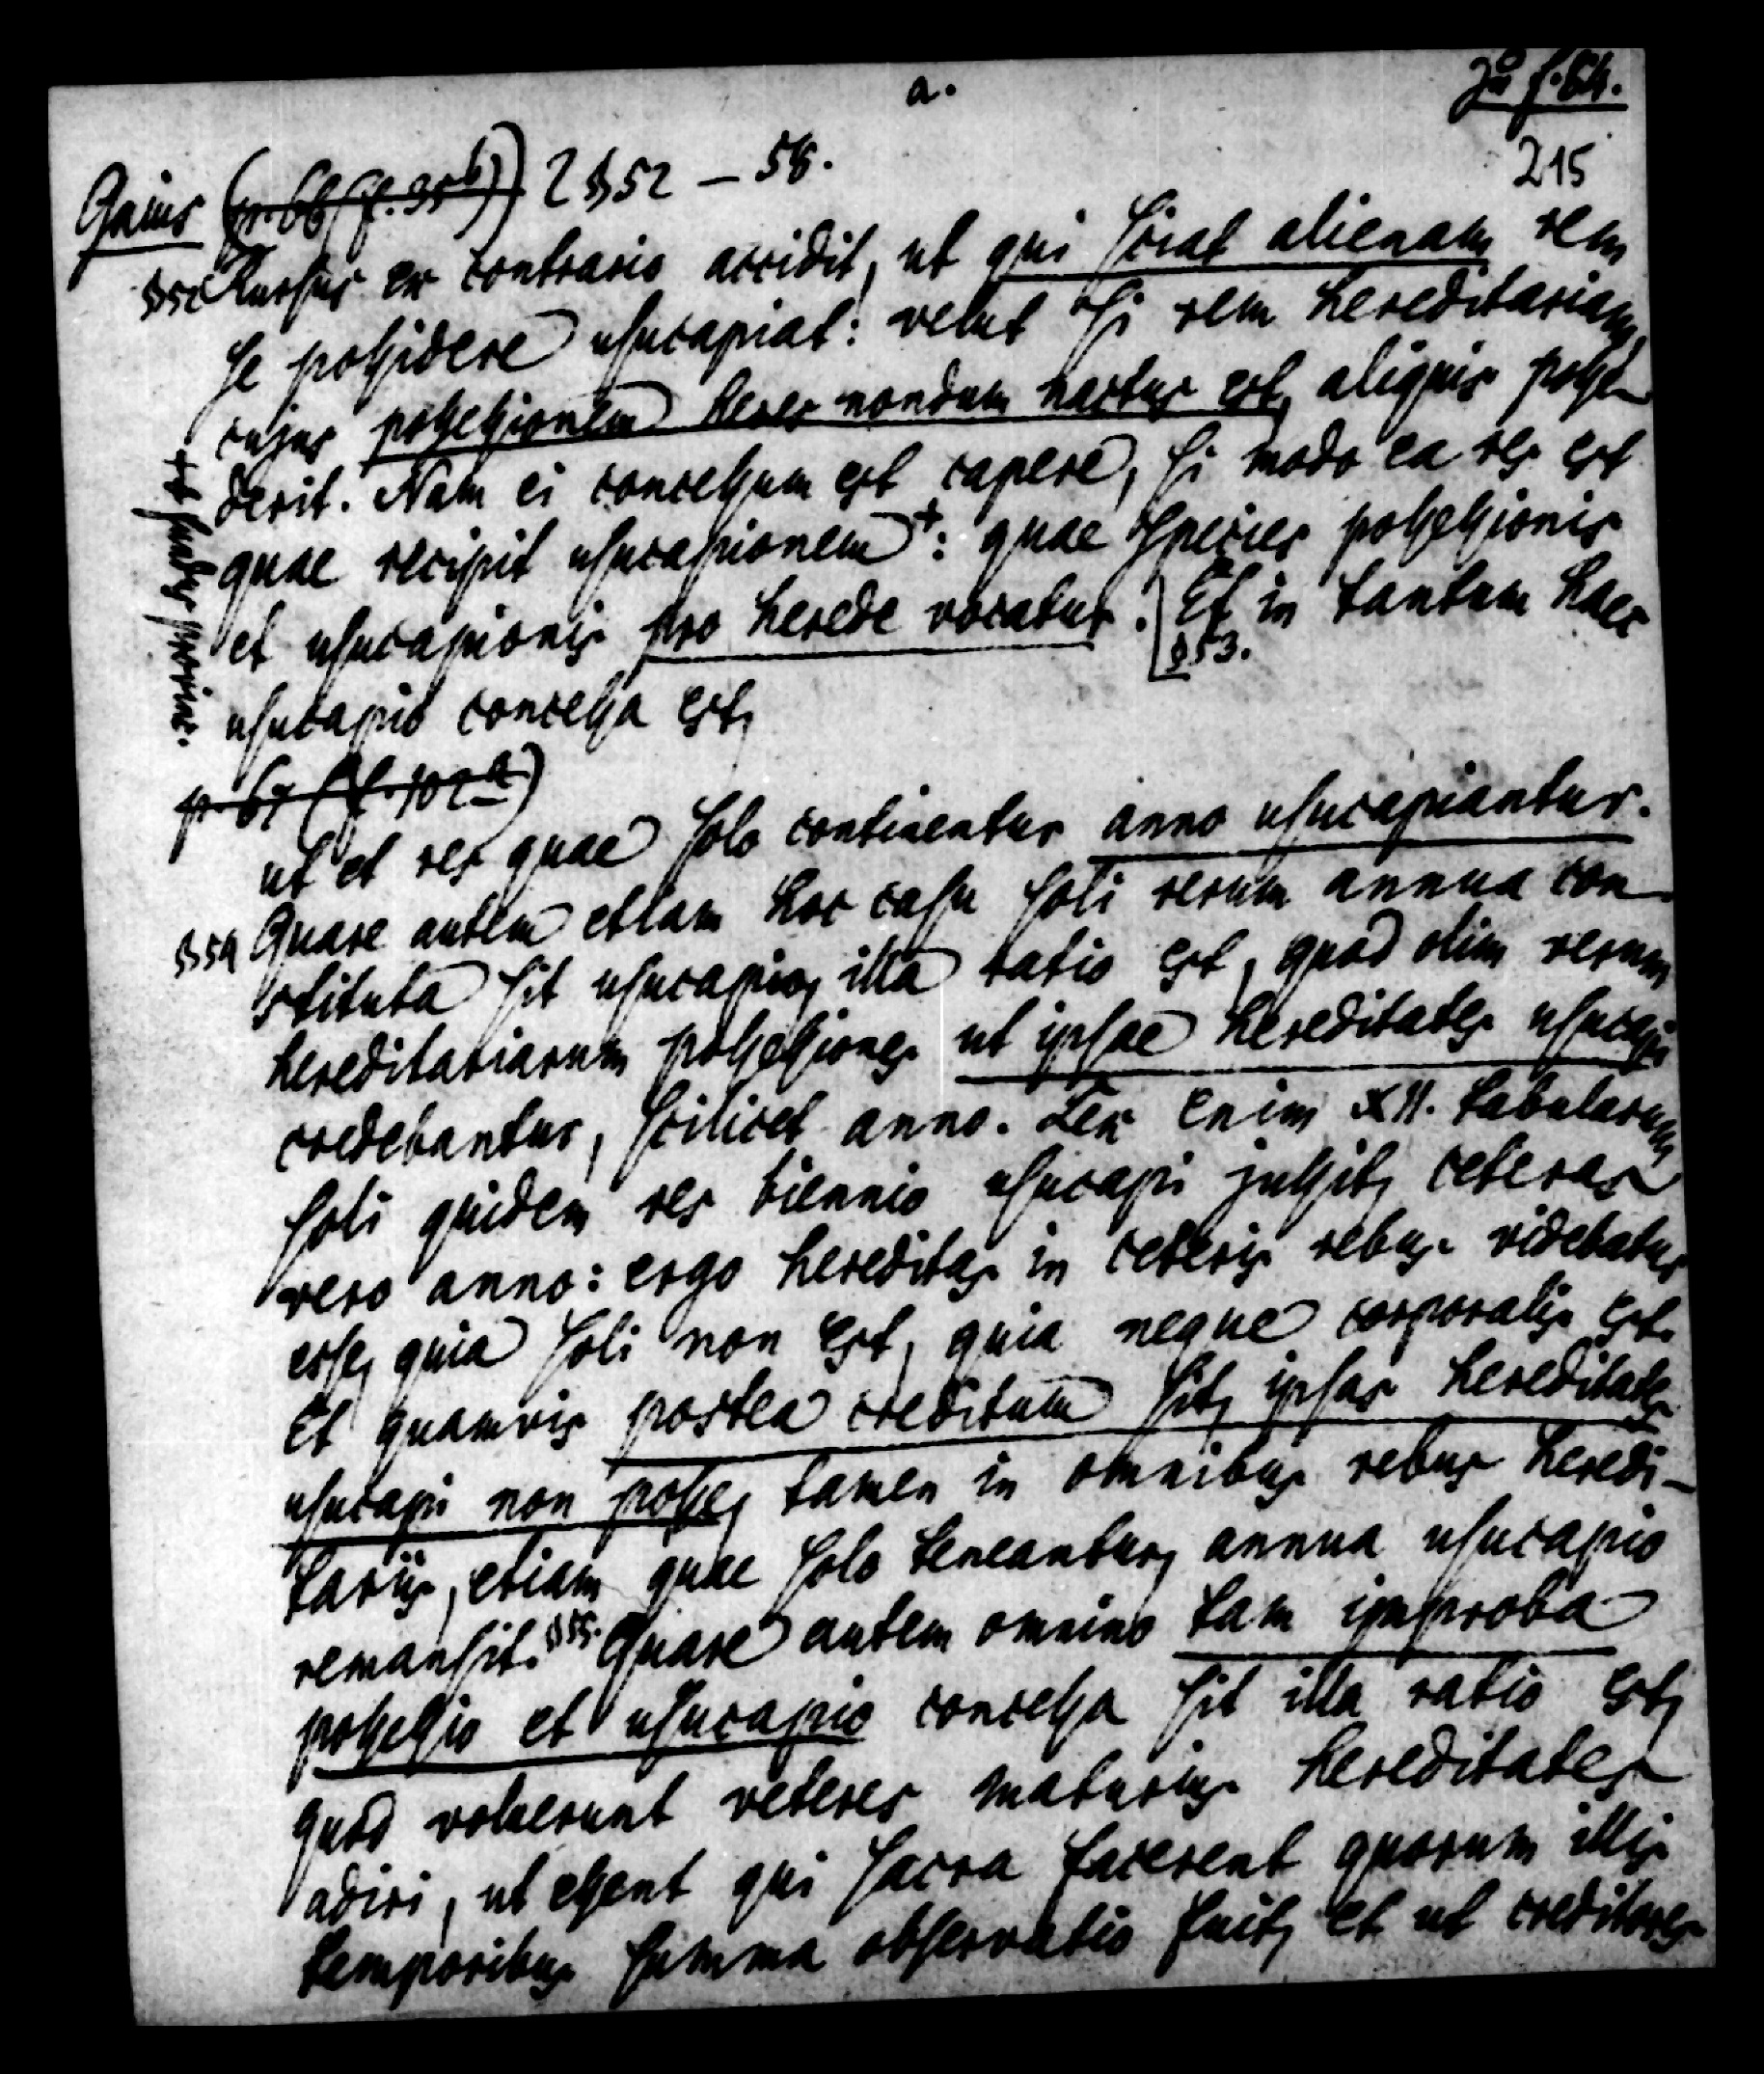 a.
zu f. 64.
215
Gaius (p. 66 (f. 35b)) 2 § 52 – 58.
§ 52 Rursus ex contrario accidit, ut qui sciat alienam rem
se possidere usucapiat: velut si rem hereditariam,
cujus possessionem heres nondum nactus est, aliquis posse
derit. Nam ei concessum est capere, si modo ea res est
quae recipit usucapionem +: quae species possessionis
et usucapionis pro herede vocatur. Et in tantum haec
§ 53.
usucapio concessa est,
p. 67 (f. 102a)
ut et res quae solo continentur anno usucapiantur.
§ 54 Quare autem etiam hoc casu soli rerum annua con-
stituta sit usucapio, illa ratio est, quod olim rerum
hereditariarum possessiones ut ipsae hereditates usucapi
credebantur, scilicet anno. Lex enim XII. tabularum
soli quidem res biennio usucapi jussit, ceteras
vero anno: ergo hereditas in ceteris rebus videbatur
esse, quia soli non est, quia neque corporalis est.
Et quamvis postea creditum sit, ipsas hereditates
usucapi non posse, tamen in omnibus rebus heredi-
tariis, etiam quae solo teneantur, annua usucapio
remansit. § 55. Quare autem omnino tam improba
possessio et usucapio concessa sit illa ratio est,
quod voluerunt veteres maturius hereditates
adiri, ut essent qui sacra facerent quorum illis
temporibus summa observatio fuit, et ut creditores